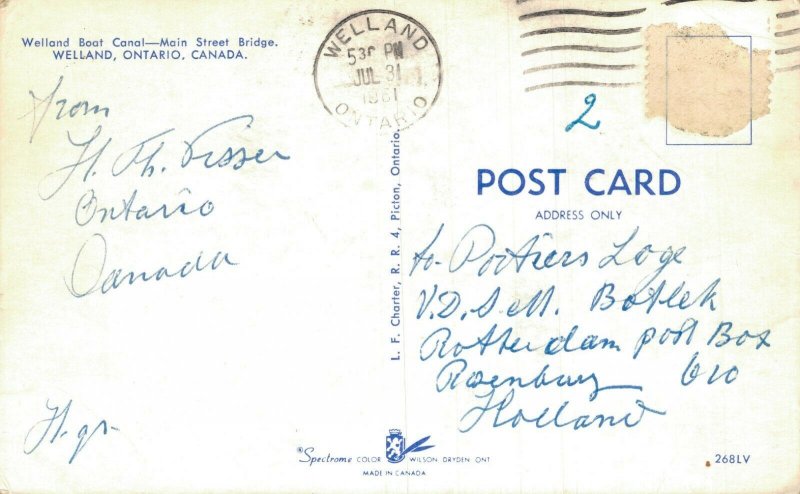 Welland Boat Canal—Main Street Bridge.
WELLAND, ONTARIO, CANADA.
WELLAND
5 30 PM
JUL 31
1961
ONTARIO
2
from
H. Th. Visser
Ontario
Canada
H. gr.
L. F. Charter, R. R. 4, Picton, Ontario.
POST CARD
ADDRESS ONLY
to Portiers Loge
V.D.S en M. Botlek
Rotterdam post Box
Rozenburg 610
Holland
Spectrome COLOR WILSON, DRYDEN, ONT
MADE IN CANADA
268LV